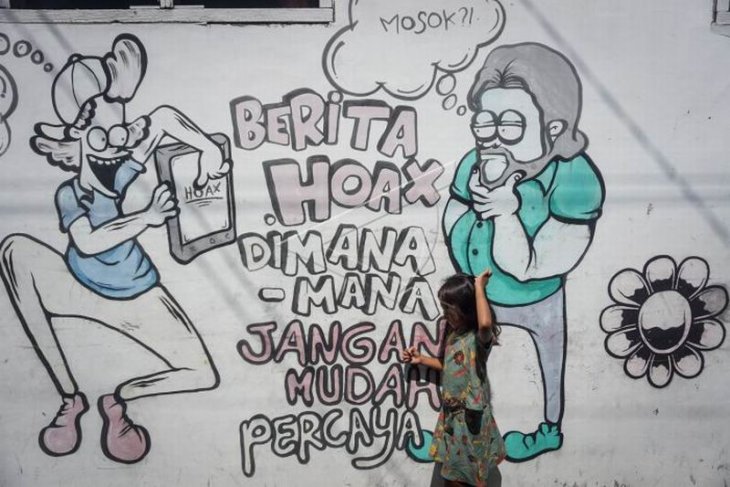 MOSOK?!
HOAX
BERITA
HOAX
DIMANA
-MANA
JANGAN
MUDAH
PERCAYA